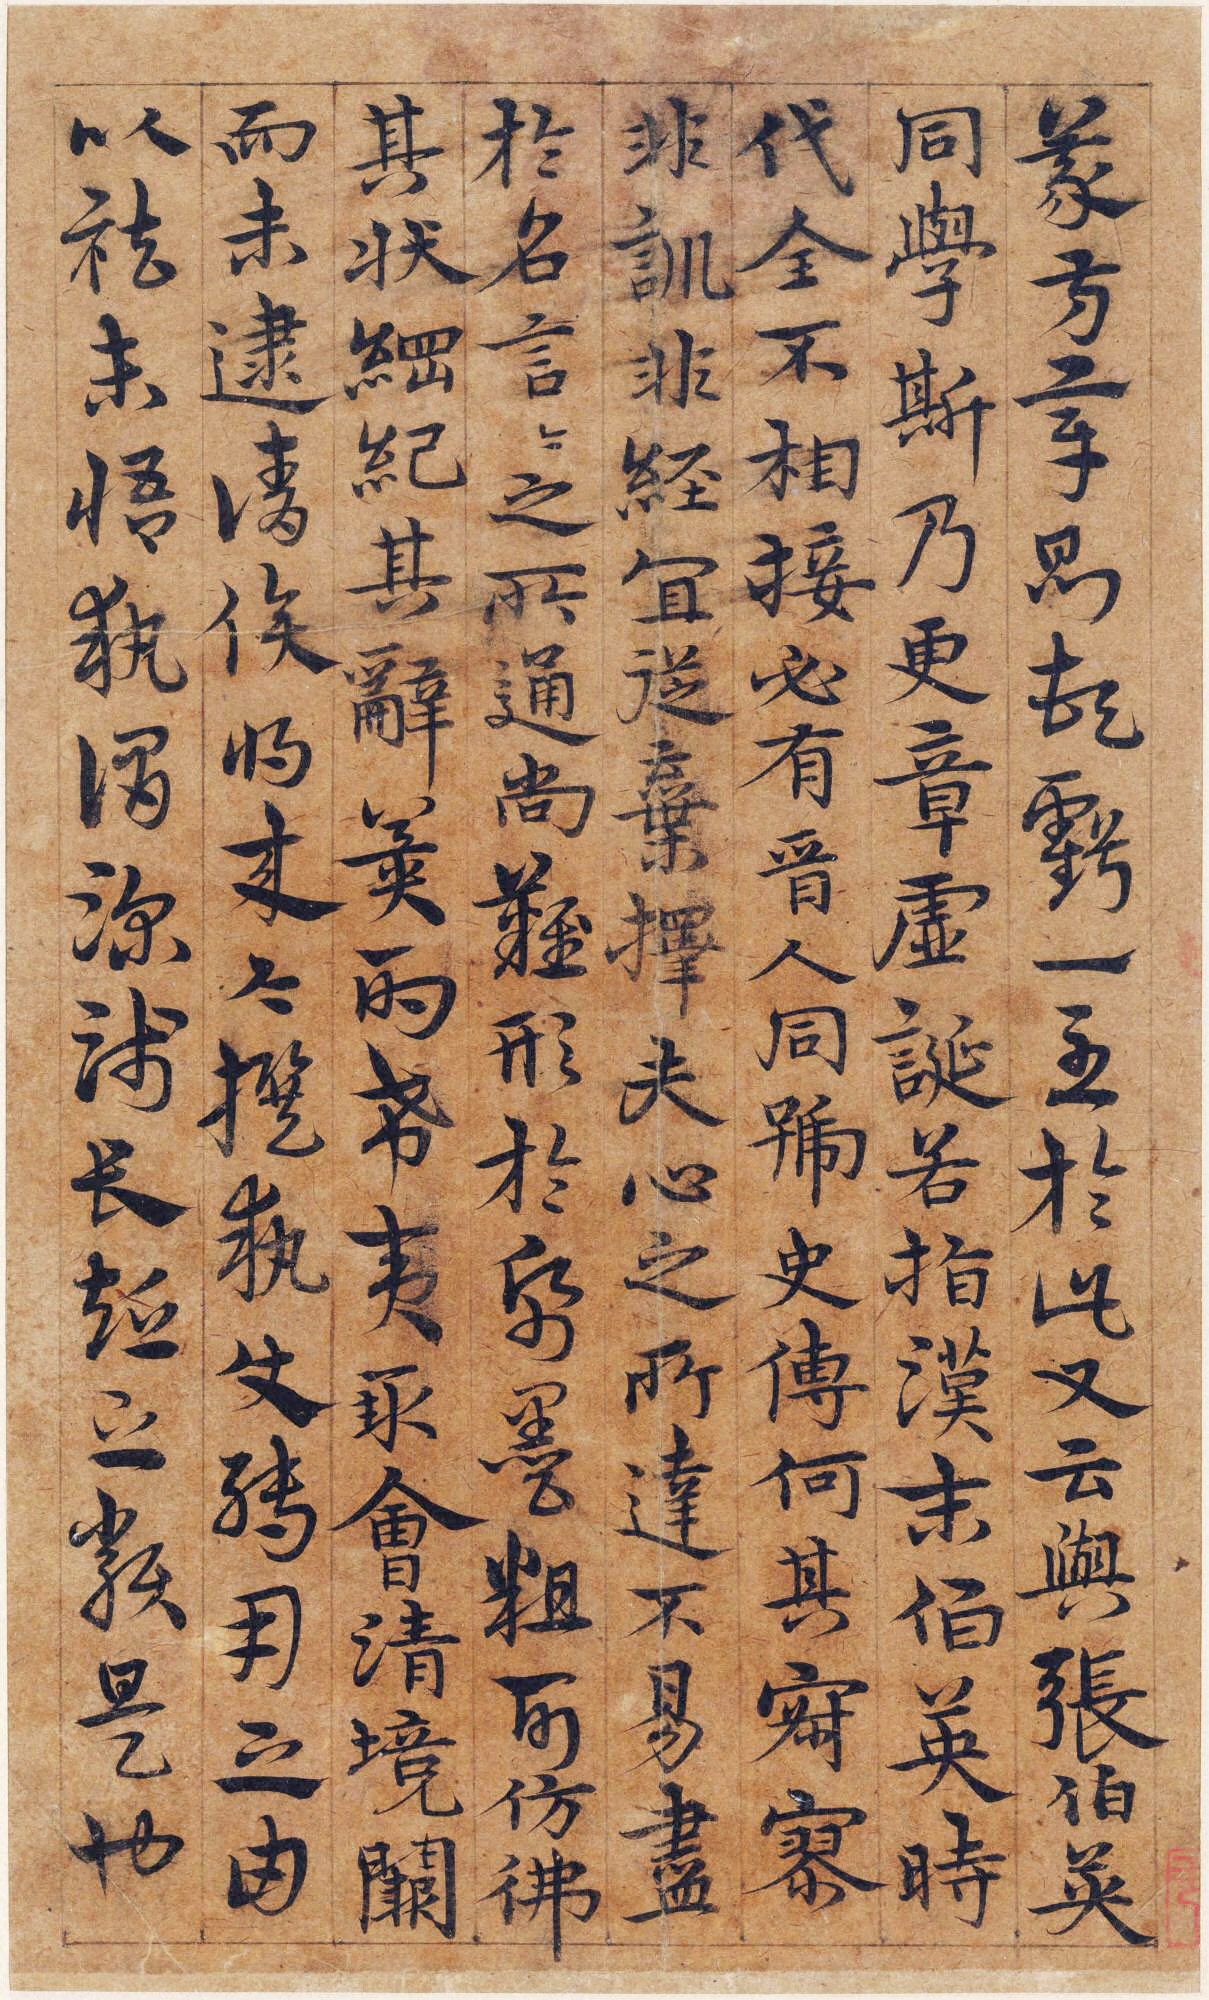 義方章則頓虧一至於此又云與張伯英
同學斯乃更章虛誕若指漢末伯英時
代全不相接必有晉人同號史傳何其寂寥
非訓非經宜從棄擇夫心之所達不易盡
於名言言之所通尚難形於紙墨粗可仿彿
其狀綱紀其辭冀酌希夷取會清境闕
而未逮請俟將來今撰執使轉用之由
以祛未悟執謂深淺長短之類是也